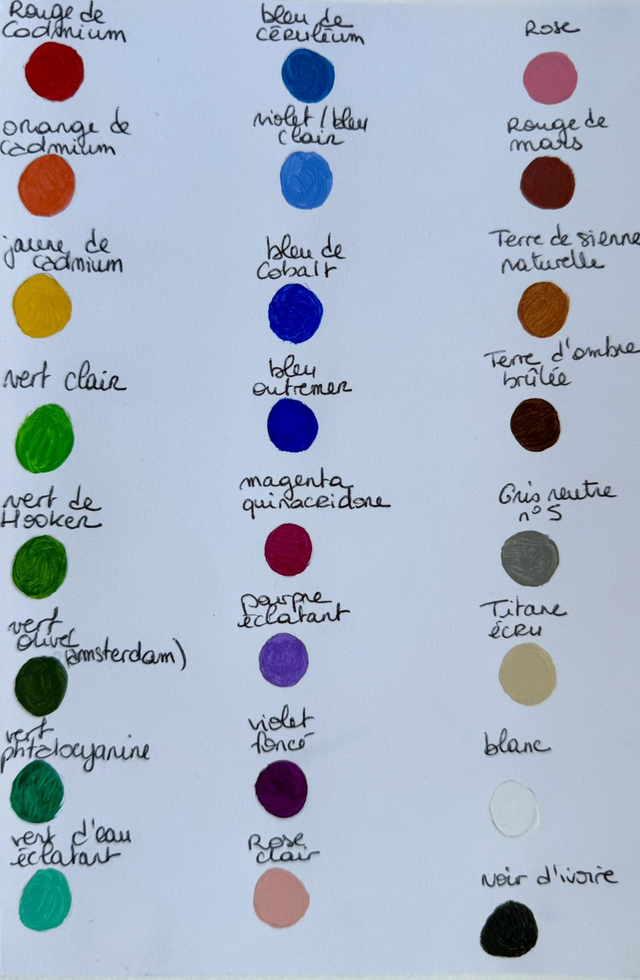 Rouge de
Cadmium
orange de
cadmium
jaune de
cadmium
vert clair
vert de
Hooker
vert
olive
(Amsterdam)
vert
phtolocyanine
vert d'eau
éclatant
bleu de
céruléum
violet/bleu
clair
bleu de
Cobalt
bleu
outremer
magenta
quinacridone
pourpre
éclatant
violet
foncé
Rose
clair
Rose
Rouge de
mars
Terre de sienne
naturelle
Terre d'ombre
brûlée
Gris neutre
n°5
Titane
écru
blanc
Noir d'ivoire